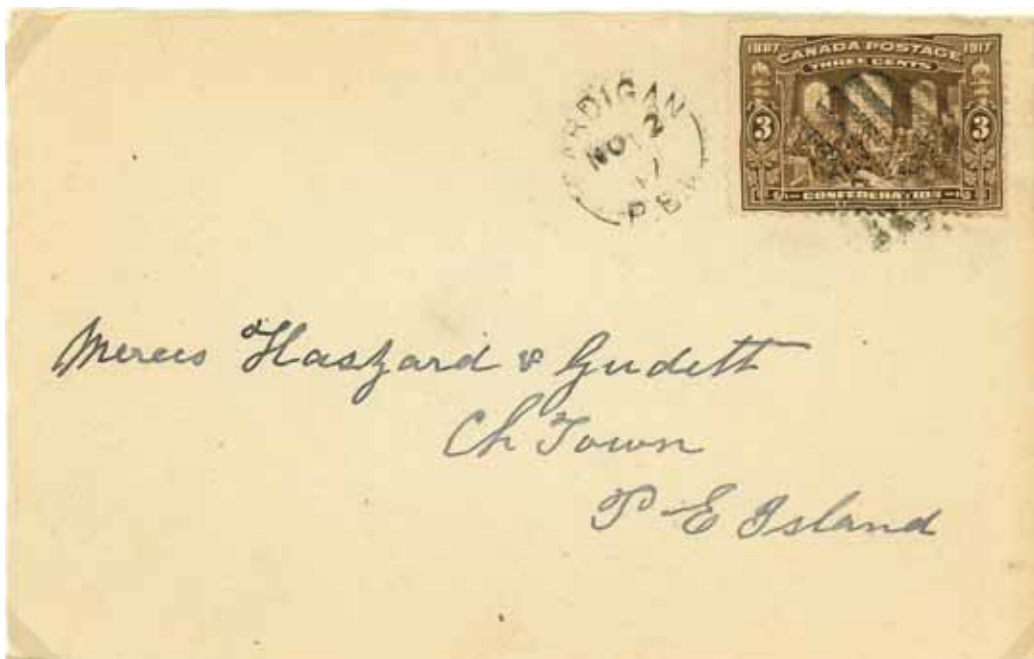 1867 CANADA POSTAGE 1917
THREE CENTS
3 3
CONFEDERATION
CARDIGAN
NO 2
17
P.E.I
Merers Haszard & Gudett
Ch Town
P E Island